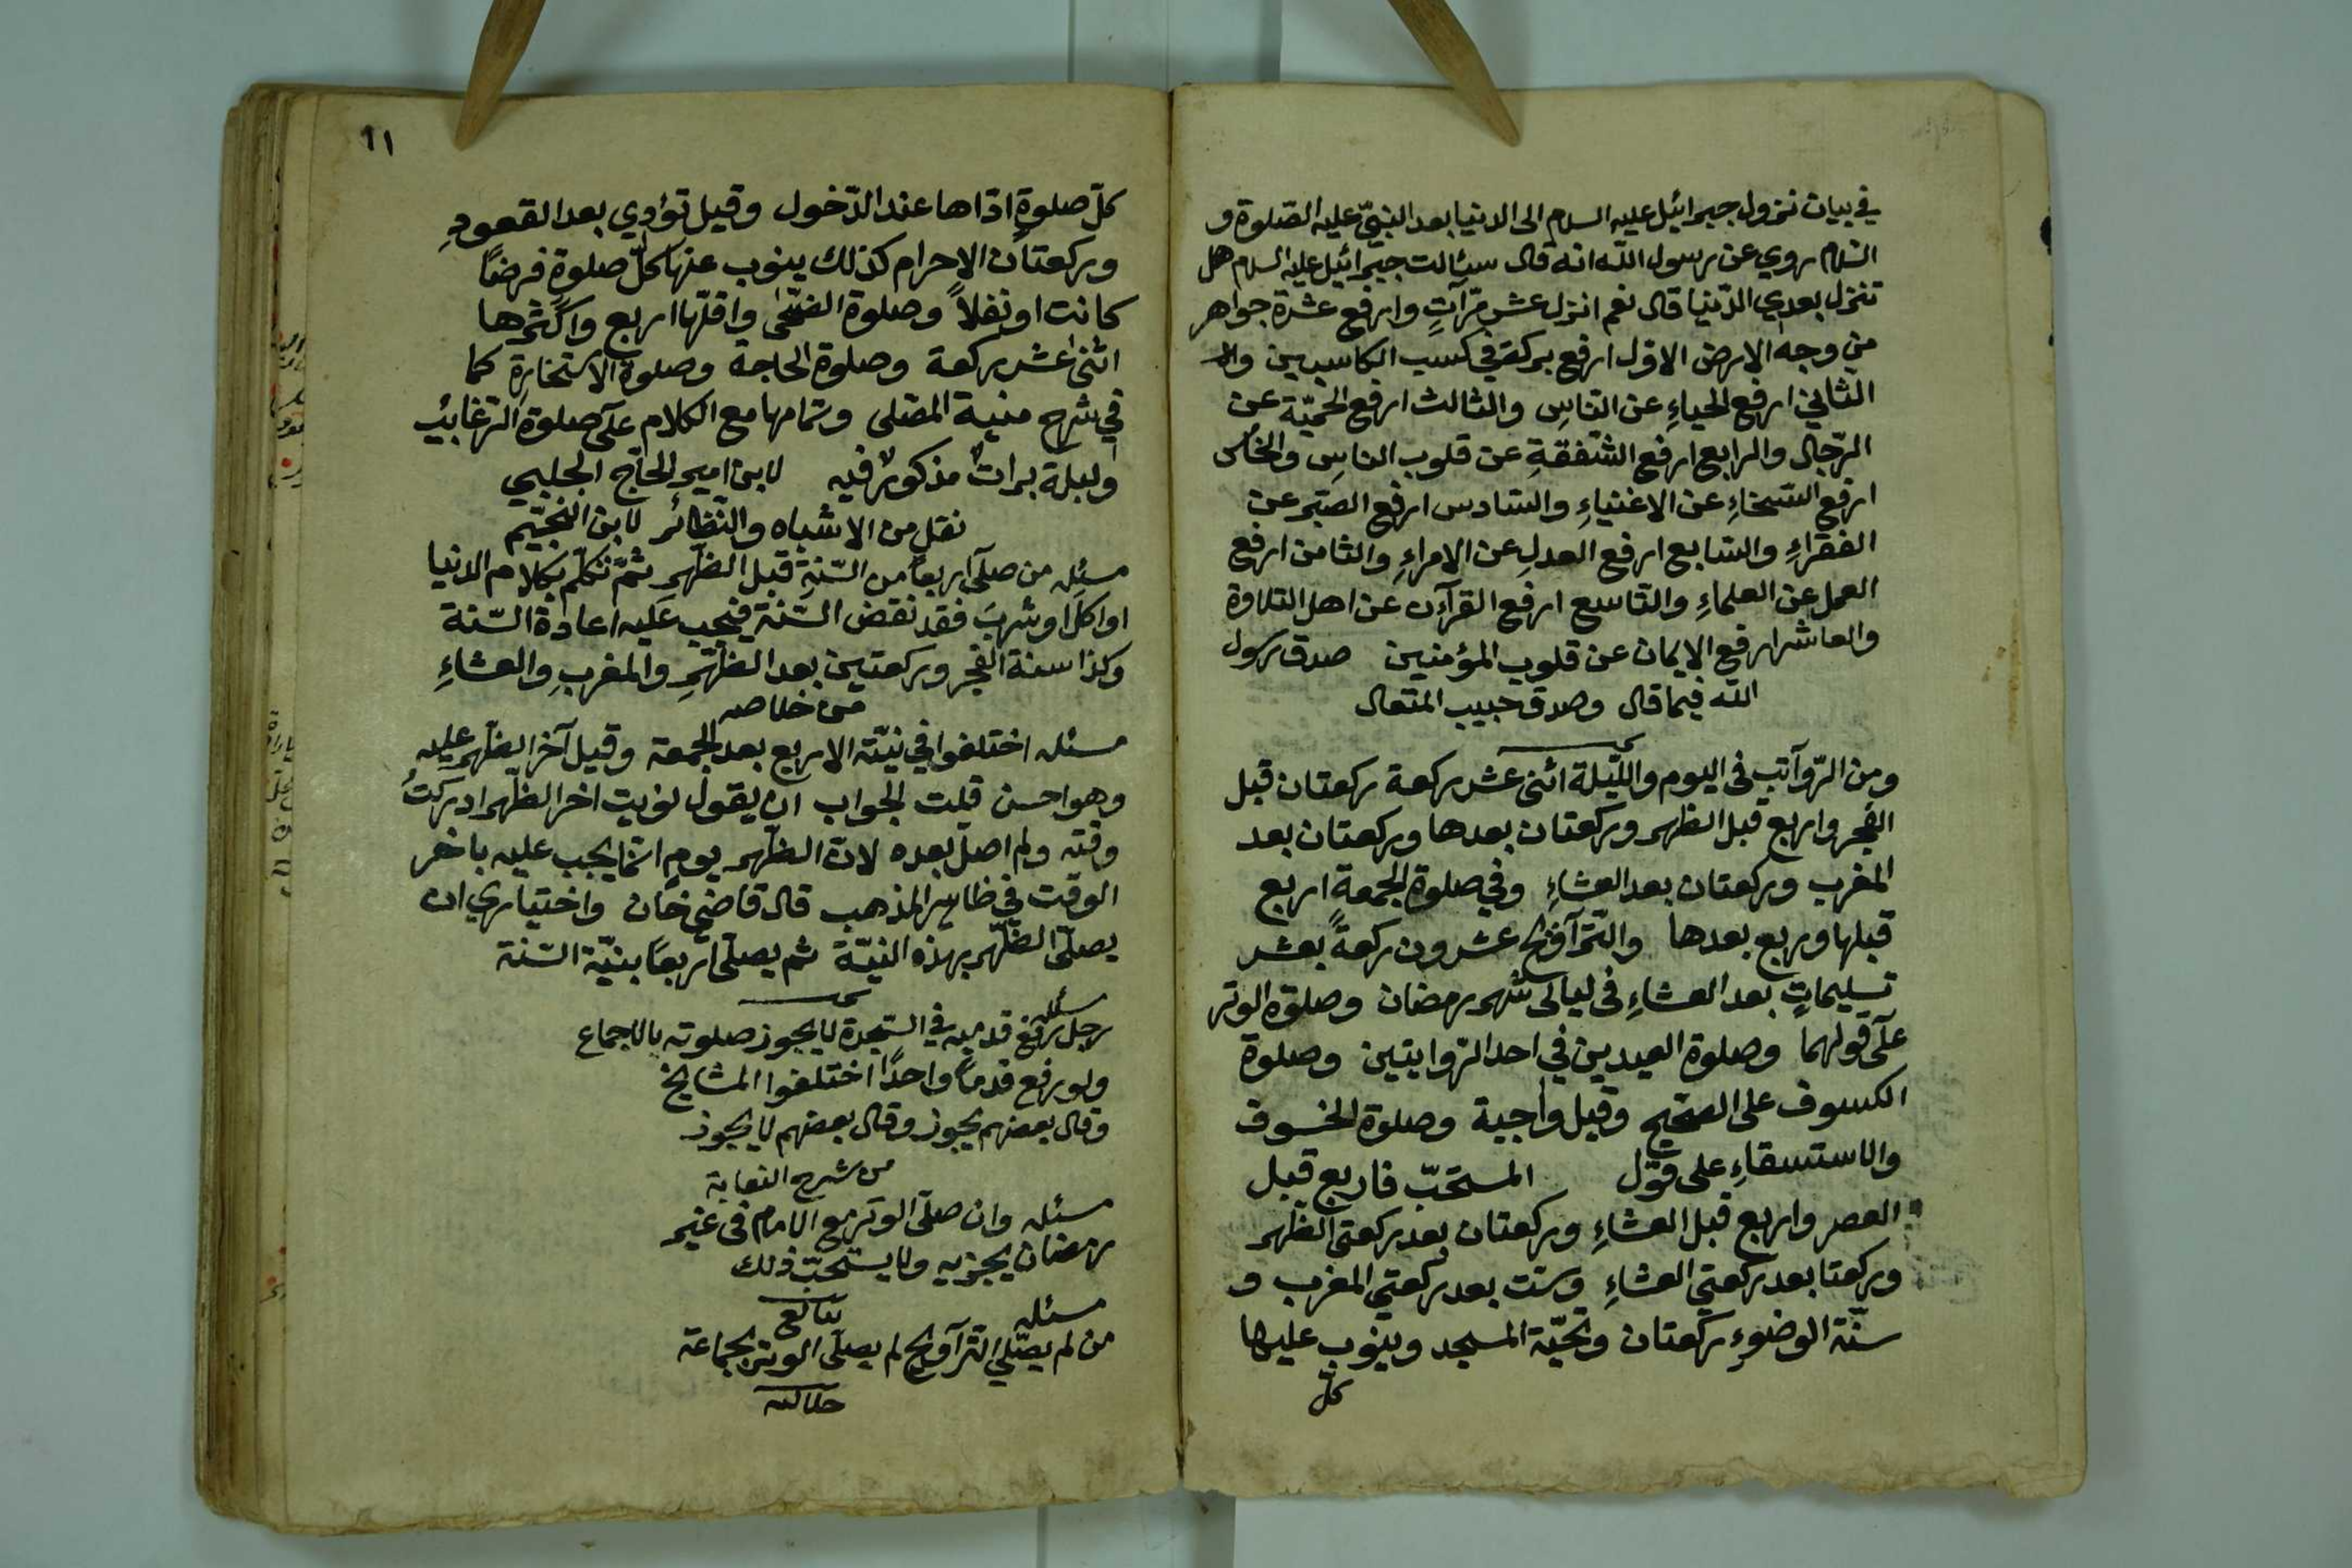 في بيان نزول جبرائيل عليه السلام الى الدنيا بعد النبيّ عليه الصّلوة و
السّلام روي عن رسول اللّه انه قال سئالت جبرائيل عليه السلام هل
تنزل بعدي الدّنيا قال نعم انزل عشر مرّآتٍ وارفع عشرة جواهر
من وجه الارض الاوّل ارفع بركة في كسب الكاسبين
الثّاني ارفع الحياءِ عن النّاسِ والثالث ارفع الحميّة عن
الرّجال والرابع ارفع الشّفقةِ عن قلوب الناسِ والخامس
ارفع السّخاءِ عن الاغنياءِ والسّادس ارفع الصّبر عن
الفقراءِ والسّابع ارفع العدلِ عن الامراءِ والثامن ارفع
العمل عن العلماءِ والتّاسع ارفع القرآن عن اهل التلاوة
والعاشر ارفع الايمان عن قلوب المؤمنين صدق رسول
اللّه فيما قال وصدق حبيب المتعال
ومن الرّوآتب فى اليوم واللّيلة اثنى عشر ركعة ركعتان قبل
الفجر واربع قبل الظهر وركعتان بعدها وركعتان بعد
المغرب وركعتان بعد العشاءِ وفي صلوة الجمعة اربع
قبلها وربع بعدها والتّرآويح عشرون ركعةً بعشر
تسليماتٍ بعد العشاءِ فى ليالى شهر رمضان وصلوة الوتر
علآى قولهما وصلوة العيدين في احد الرّوايتين وصلوة
الكسوف على الصّحيح وقيل واجبة وصلوة الخسوف
والاستسقاءِ على قول المستحبّ فاربع قبل
العصر واربع قبل العشاءِ وركعتان بعد ركعتى الظّهر
وركعتا بعد ركعتي العشاءِ وستّ بعد ركعتي المغرب و
سنّة الوضوءِ ركعتان وتحيّة المسجد وينوب عليها
كلّ
١١
كلّ صلوةٍ ادّاها عند الدّخول وقيل تؤدي بعد القعودِ
وركعتان الاحرام كذلك ينوب عنها كلّ صلوةٍ فرضًا
كانت او نفلاً وصلوة الضّحى واقلّها اربع واكثرها
اثنى عشر ركعة وصلوة الحاجة وصلوة الاستخارةِ كما
في شرح منية المصّلى وتمامها مع الكلام علآى صلوة الرّغايبِ
وليلة برات مذكور فيه لابن امير الحاّج الجلبي
نقل من الاشباه والنّظائر لابن النّجيّم
مسئله من صلّى اربعاً من السّنةِ قبل الظّهرِ ثمّ تكلّم بكلام الدنيا
او اكل او شربَ فقد نقض السّنة فيجب عليه اعادة السّنة
وكذا سنة الفجر وركعتين بعد الظّهرِ والمغربِ والعشاءِ
من خلاصه
مسئله اختلفوا في نيّة الاربع بعد الجمعة وقيل آخر الظّهر عليه
وهو احسن قلت الجواب ان يقول نويت اخر الظّهر ادركتُ
وقته ولم اصلّ بعده لان الظّهر يوم انّما يجب عليه باخر
الوقت في ظاهر المذهب قال قاضي خان واختياري ان
يصلّى الظّهر بهذه النيّة ثم يصلّى اربعًا بنيّة السّنة
مسئله
رجل رفع قدميه في السّجدة لا يجوز صلوته بالاجماع
ولو رفع قدماً واحدًا اختلفوا المشايخ
وقال بعضهم يجوز وقال بعضهم لا يجوز
من شرح النقاية
مسئله وان صلّى الوتر مع الامام فى غير
رمضان يجزيه ولا يستحبّ ذلك
مسئله
من لم يصّلي التّرآويح لم يصلّى الوتر بجماعة